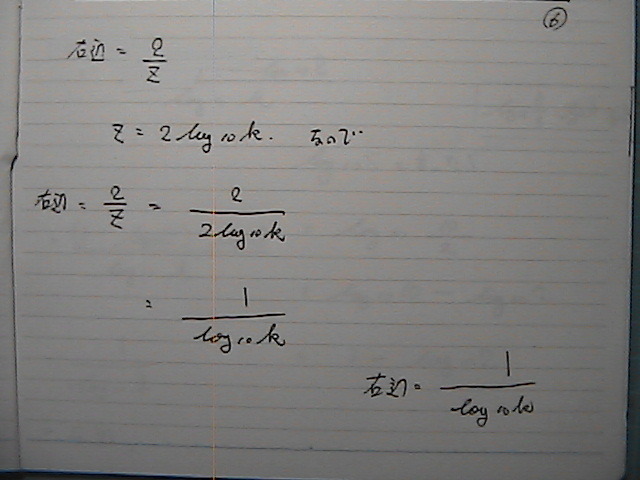 ⑥
右辺 = 2/Z
Z = 2 log₁₀k. なので
右辺 = 2/Z = 2/(2 log₁₀k)
= 1/(log₁₀k)
右辺 = 1/(log₁₀k)